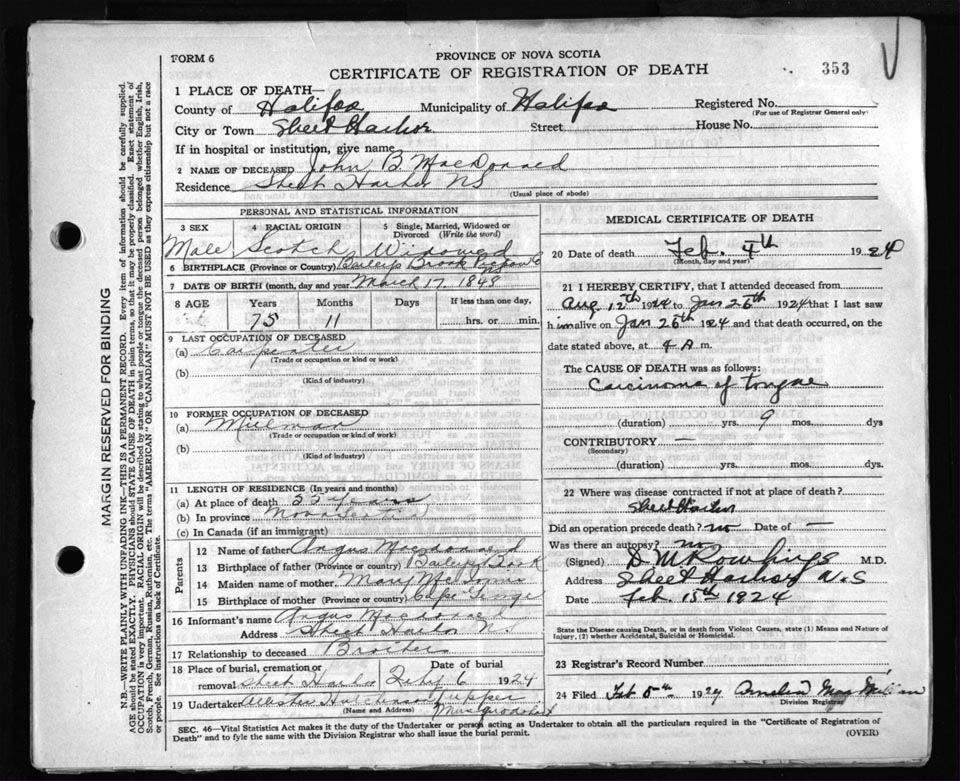 FORM 6
PROVINCE OF NOVA SCOTIA
CERTIFICATE OF REGISTRATION OF DEATH
353
1 PLACE OF DEATH—
County of Halifax Municipality of Halifax Registered No.
(For use of Registrar General only)
City or Town Sheet Harbor Street House No.
If in hospital or institution, give name
2 NAME OF DECEASED John B MacDonald
Residence Sheet Harbor NS
(Usual place of abode)
PERSONAL AND STATISTICAL INFORMATION
3 SEX 4 RACIAL ORIGIN 5 Single, Married, Widowed or Divorced (Write the word)
Male Scotch Widowed
6 BIRTHPLACE (Province or Country) Baileys Brook Pictou Co NS
7 DATE OF BIRTH (month, day and year) March 17, 1848
8 AGE Years Months Days If less than one day,
75 11 hrs. or min.
9 LAST OCCUPATION OF DECEASED
(a) Carpenter
(Trade or occupation or kind or work)
(b)
(Kind of industry)
10 FORMER OCCUPATION OF DECEASED
(a) Millman
(Trade or occupation or kind of work)
(b)
(Kind of industry)
11 LENGTH OF RESIDENCE (In years and months)
(a) At place of death 55 years
(b) In province Nova Scotia
(c) In Canada (if an immigrant)
Parents
12 Name of father Angus Macdonald
13 Birthplace of father (Province or country) Baileys Brook
14 Maiden name of mother Mary
15 Birthplace of mother (Province or Country) Cape George
16 Informant's name Angus Macdonald
Address Sheet Harbor N.S.
17 Relationship to deceased Brother
18 Place of burial, cremation or removal Sheet Harbor Date of burial Feby 6 1924
19 Undertaker Tupper
(Name and Address) Musquodoboit
MEDICAL CERTIFICATE OF DEATH
20 Date of death Feb. 4th 1924
(Month, day and year)
21 I HEREBY CERTIFY, that I attended deceased from
Aug 12th 1924 to Jan 26th 1924 that I last saw
him alive on Jan 26th 1924 and that death occurred, on the
date stated above, at 4 A m.
The CAUSE OF DEATH was as follows:
Carcinoma of tongue
(duration) yrs. 9 mos. dys
CONTRIBUTORY —
(Secondary)
(duration) yrs. mos. dys.
22 Where was disease contracted if not at place of death?
Sheet Harbor
Did an operation precede death? no Date of —
Was there an autopsy? no
(Signed) D M Rowlings M.D.
Address Sheet Harbor N.S
Date Feb. 15th 1924
State the Disease causing Death, or in death from Violent Causes, state (1) Means and Nature of
Injury, (2) whether Accidental, Suicidal or Homicidal.
23 Registrar's Record Number
24 Filed Feb 5th 1924
Division Registrar
SEC. 46—Vital Statistics Act makes it the duty of the Undertaker or person acting as Undertaker to obtain all the particulars required in the "Certificate of Registration of
Death" and to fyle the same with the Division Registrar who shall issue the burial permit.
(OVER)
MARGIN RESERVED FOR BINDING
N.B.—WRITE PLAINLY WITH UNFADING INK—THIS IS A PERMANENT RECORD. Every item of information should be carefully supplied.
AGE should be stated EXACTLY. PHYSICIANS should STATE CAUSE OF DEATH in plain terms, so that it may be properly classified. Exact statement of
OCCUPATION is very important. RACIAL ORIGIN will be described by stating to what people or tongue the deceased person belonged whether English, Irish,
Scotch, French, German, Russian, Ruthenian, etc. The terms "AMERICAN" OR "CANADIAN" MUST NOT BE USED as they express citizenship but not a race
or people. See instructions on back of Certificate.